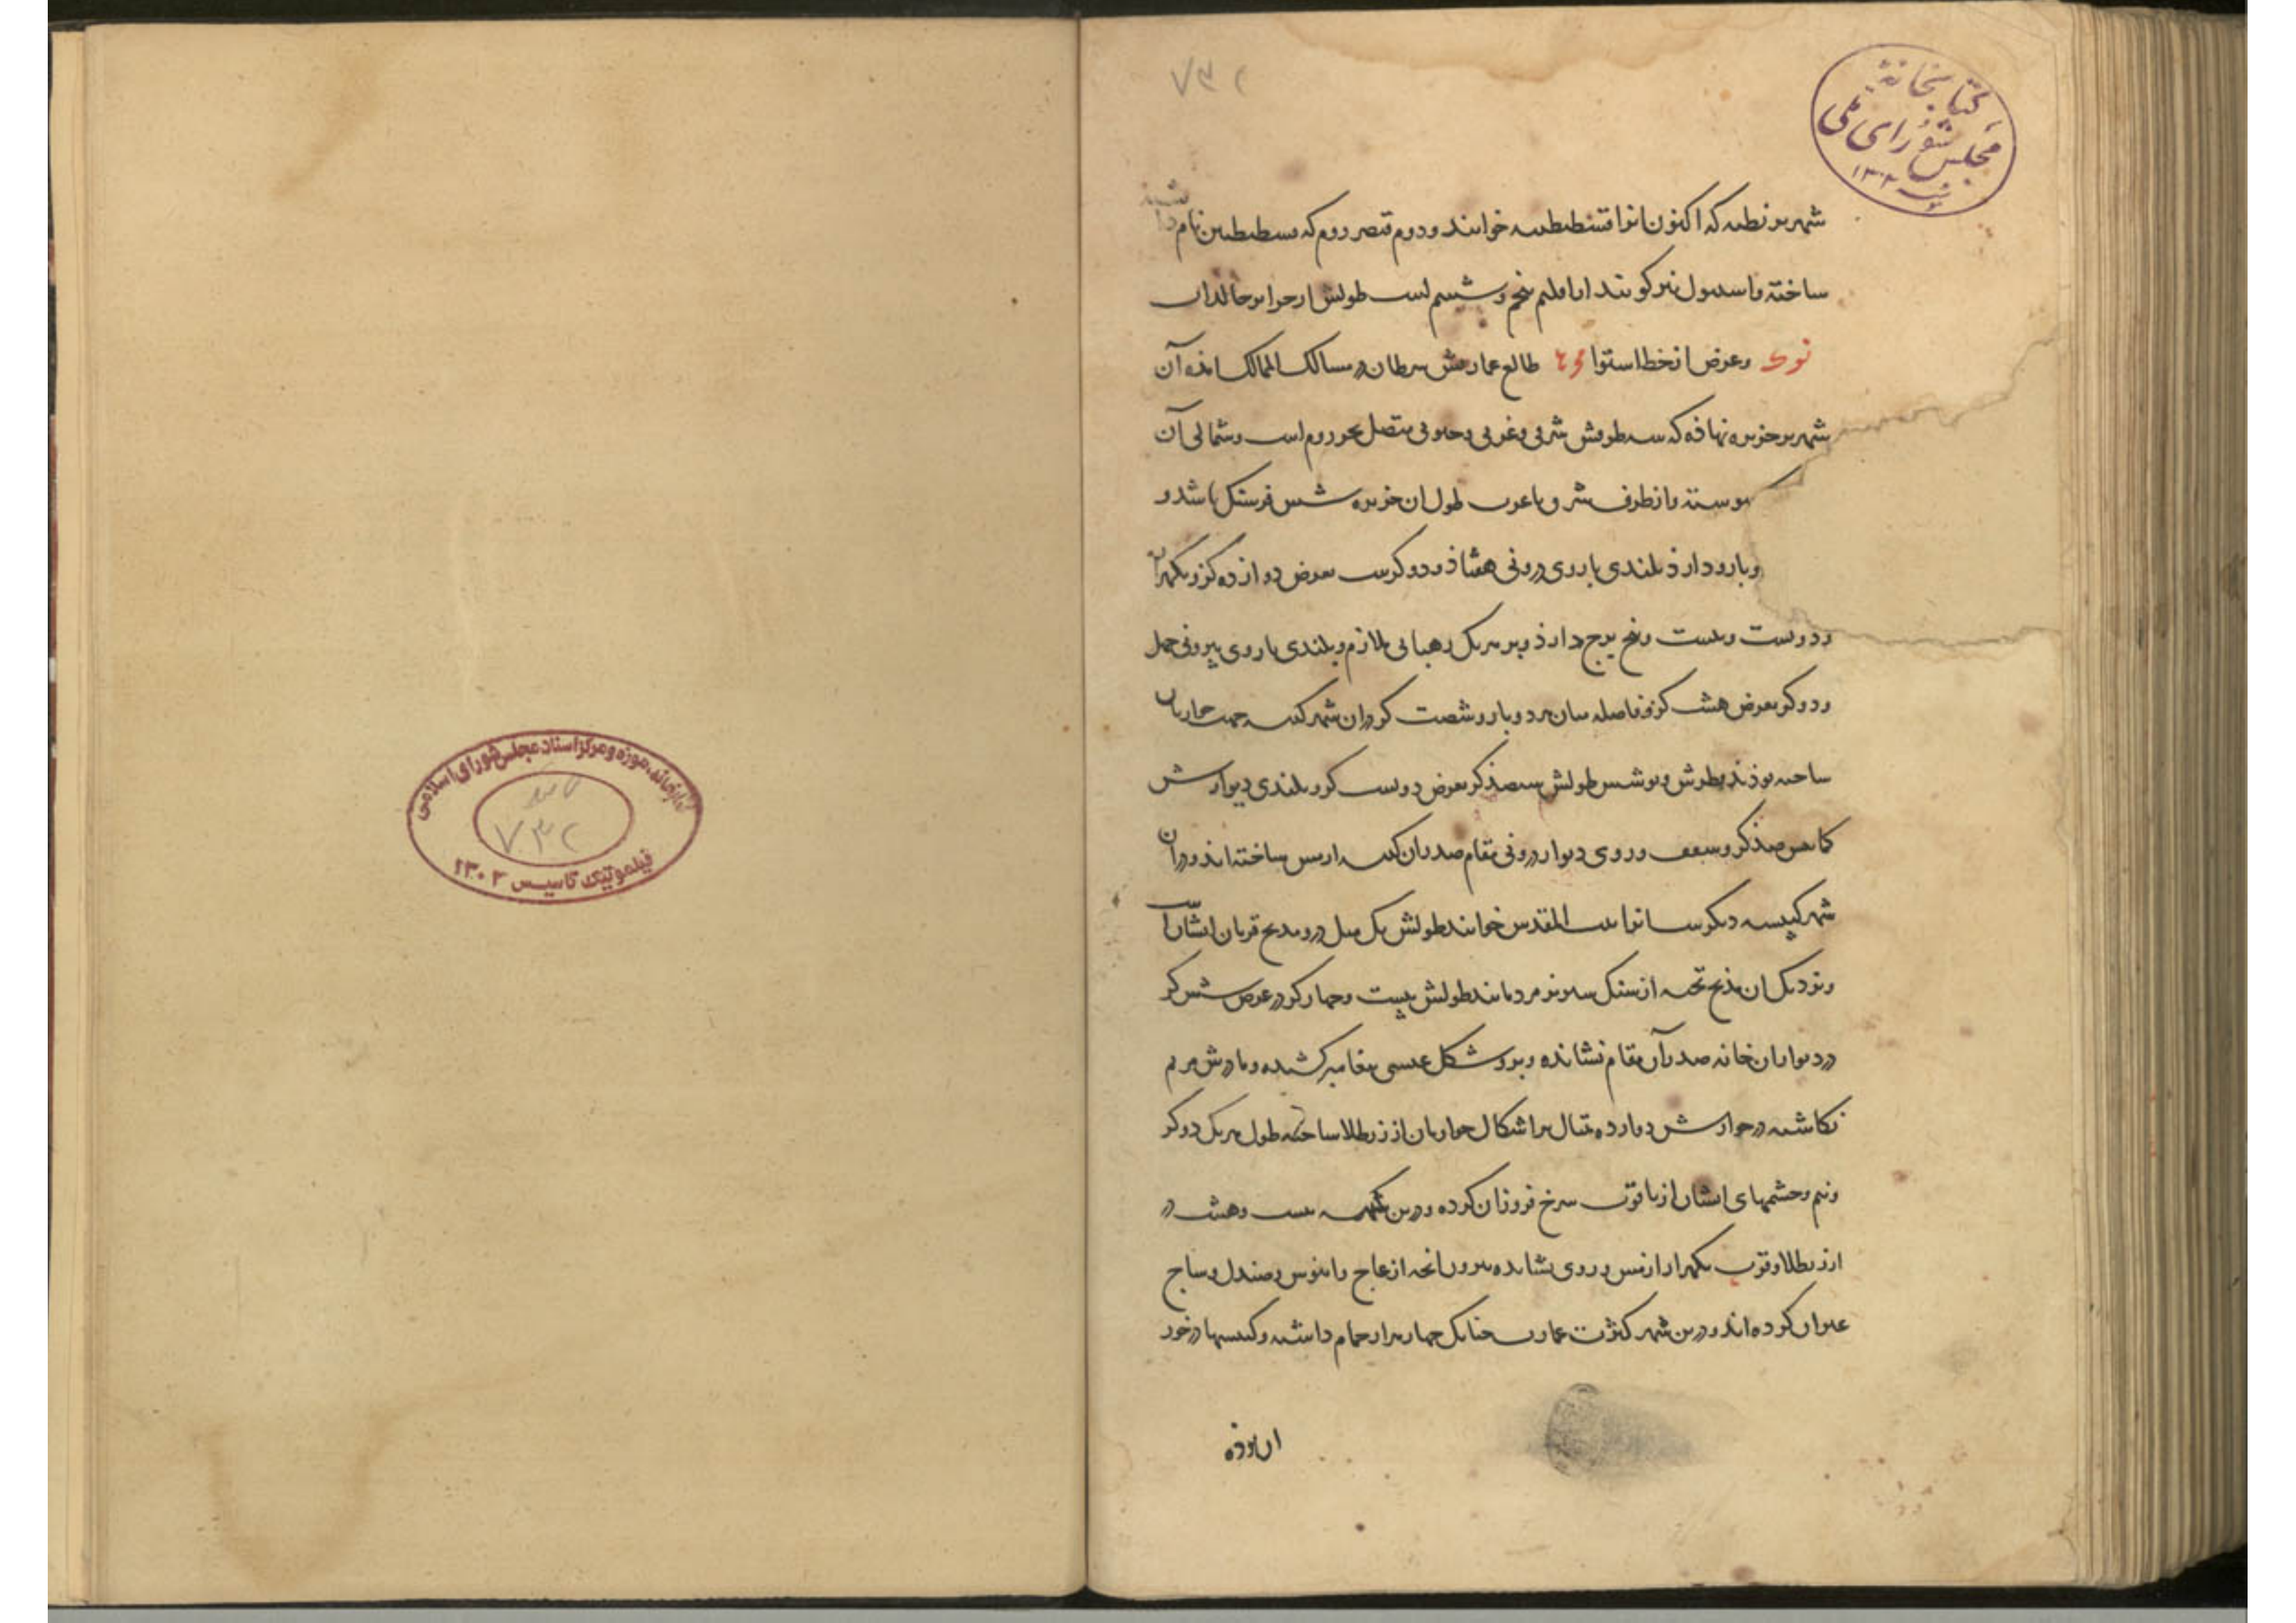 ۷۳۲
کتابخانهٔ
مجلس شورای ملی
۱۳۰۲
شهر بوزنطیه که اکنون انرا قسطنطنیه خوانند و دوم قیصر روم که قسطنطین نام داشته
ساخته و استنبول نیز کویند از اقلیم پنجم و ششم است طولش از جزایر خالدات
وعرض از خط استوا طالع عمارتش سرطان در مسالک الممالک امده آن
شهر بر جزیره نهاده که سه طرفش شرقی و غربی و جنوبی متصل بحر روم است و شمالی آن
پیوسته و از طرف شرق با غرب طول ان جزیره شش فرسنک باشد و
وبارو دارذ بلندی باروی درونی هشتاذ و دو کزست بعرض دوازده کز و یکهزار
و دویست و بیست و پنج برج دارذ و بر هر یک رهبانی ملازم و بلندی باروی بیرونی چهل
و دو کز بعرض هشت کز و فاصله میان هر دو بارو شصت کز در ان شهر کنیسه جهت حواریان
ساخته بوذند بطرش و بولش طولش سیصذ کز بعرض دویست کز و بلندی دیوارش
صذ کز و سقف و روی دیوار درونی بمقام صدر ان کنیسه از مس ساخته اند و در ان
شهر کنیسه دیکرست انرا بیت المقدس خوانند طولش یک میل درو مذبح قربان ایشان است
و نزدیک ان مذبح تخته از سنک سبز زمرد مانند طولش بیست و چهار کز در عرض شش کز
در دیوار ان خانه صدر آن مقام نشانده و برو شکل عیسی پیغامبر کشیده و مادرش مریم
نکاشته در جوارش دوازده تمثال بر اشکال حواریان از زر طلا ساخته طول هر یک دو کز
و نیم و چشمهای ایشان از یاقوت سرخ فروزان کرده و درین کنیسه بیست و هشت در
از زر طلا و قرب یکهزار در از مس و روی نشانده بیرون انچه از عاج و ابنوس و صندل و ساج
کرده اند و درین شهر کثرت عمارت چنانک چهار هزار حمام داشته و کنیسها در خور
ان بوذه
کتابخانه، موزه و مرکز اسناد مجلس شورای اسلامی
۷۳۲
تاسیس ۱۳۰۲